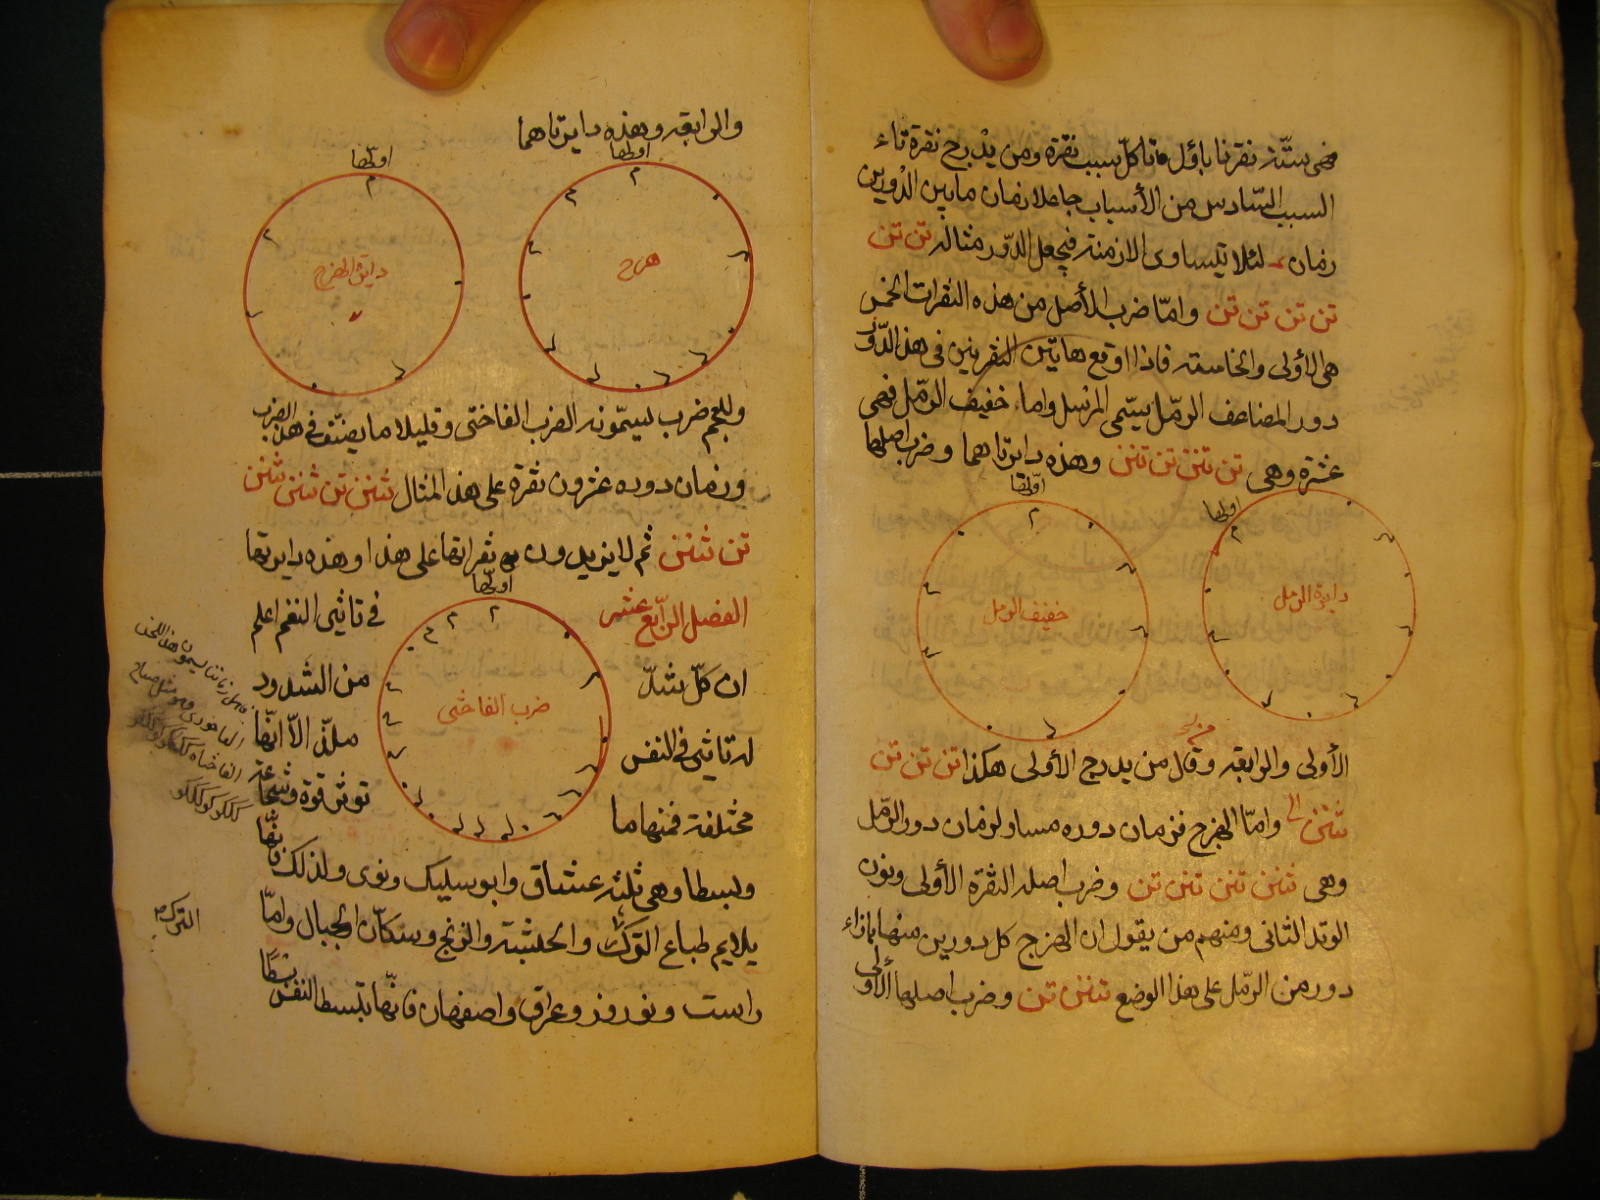 فهي ستة نقرنا باول تا كل سبب نقرة ومن يدرج نقرة تاء
السبب السادس من الأسباب جاعلا زمان ما بين الدورين
زمان لئلا تتساوى الازمنة فيجعل الدور مثاله تن تن
تن تن تن تن وامّا ضرب الأصل من هذه النقرات الخمس
هي الأولى والخامسة فاذا اوقع هاتين النقرتين في هذا الدّور
دور المضاعف الرمّل يسمّى المرسل واما خفيف الرمّل فهي
عشرة وهي تن تنن تن تنن وهذه دايرتاهما وضرب اصلها
اولها
اولها
دايرة الرمل
خفيف الرمل
الأولى والرابعة وقلّ من يدرج الأولى هكذا تن تن تن
تننن وامّا الهزج فزمان دوره مساو لزمان دور الرمّل
وهي تنن تنن تنن تن وضرب اصله النقرة الأولى ونون
الوتد الثاني ومنهم من يقول ان الهزج كل دورين منها بازاء
دور من الرمّل على هذا الوضع تننن تن وضرب اصلها الأولى
والرابعة وهذه دايرتاهما
اولها
اولها
هزج
دايرة الهزج
وللعجم ضرب ليسمّونه الضرب الفاختي وقليلا ما يصنّف في هذا الضرب
وزمان دوره عشرون نقرة على هذا المثال تننن تن تننن تننن
تن تننن ثم لا يزيدون نقراتها على هذا وهذه دايرتها
اولها
الفصل الرّابع عشر في تاثير النغم اعلم
ان كلّ شدّ من الشدود
ضرب الفاختي
له تاثير في النفس ملذّ الاّ انّها
مختلفة فمنها ما توثر قوة وشجاعة
وبسطا وهي ثلثة عشاق وابوسليك ونوى ولذلك فانّها
يلايم طباع الترك والحبشة والزنج وسكّان الجبال وامّا
راست ونوروز وعراق واصفهان فانّها تبسط النفس بسطًا
الترك